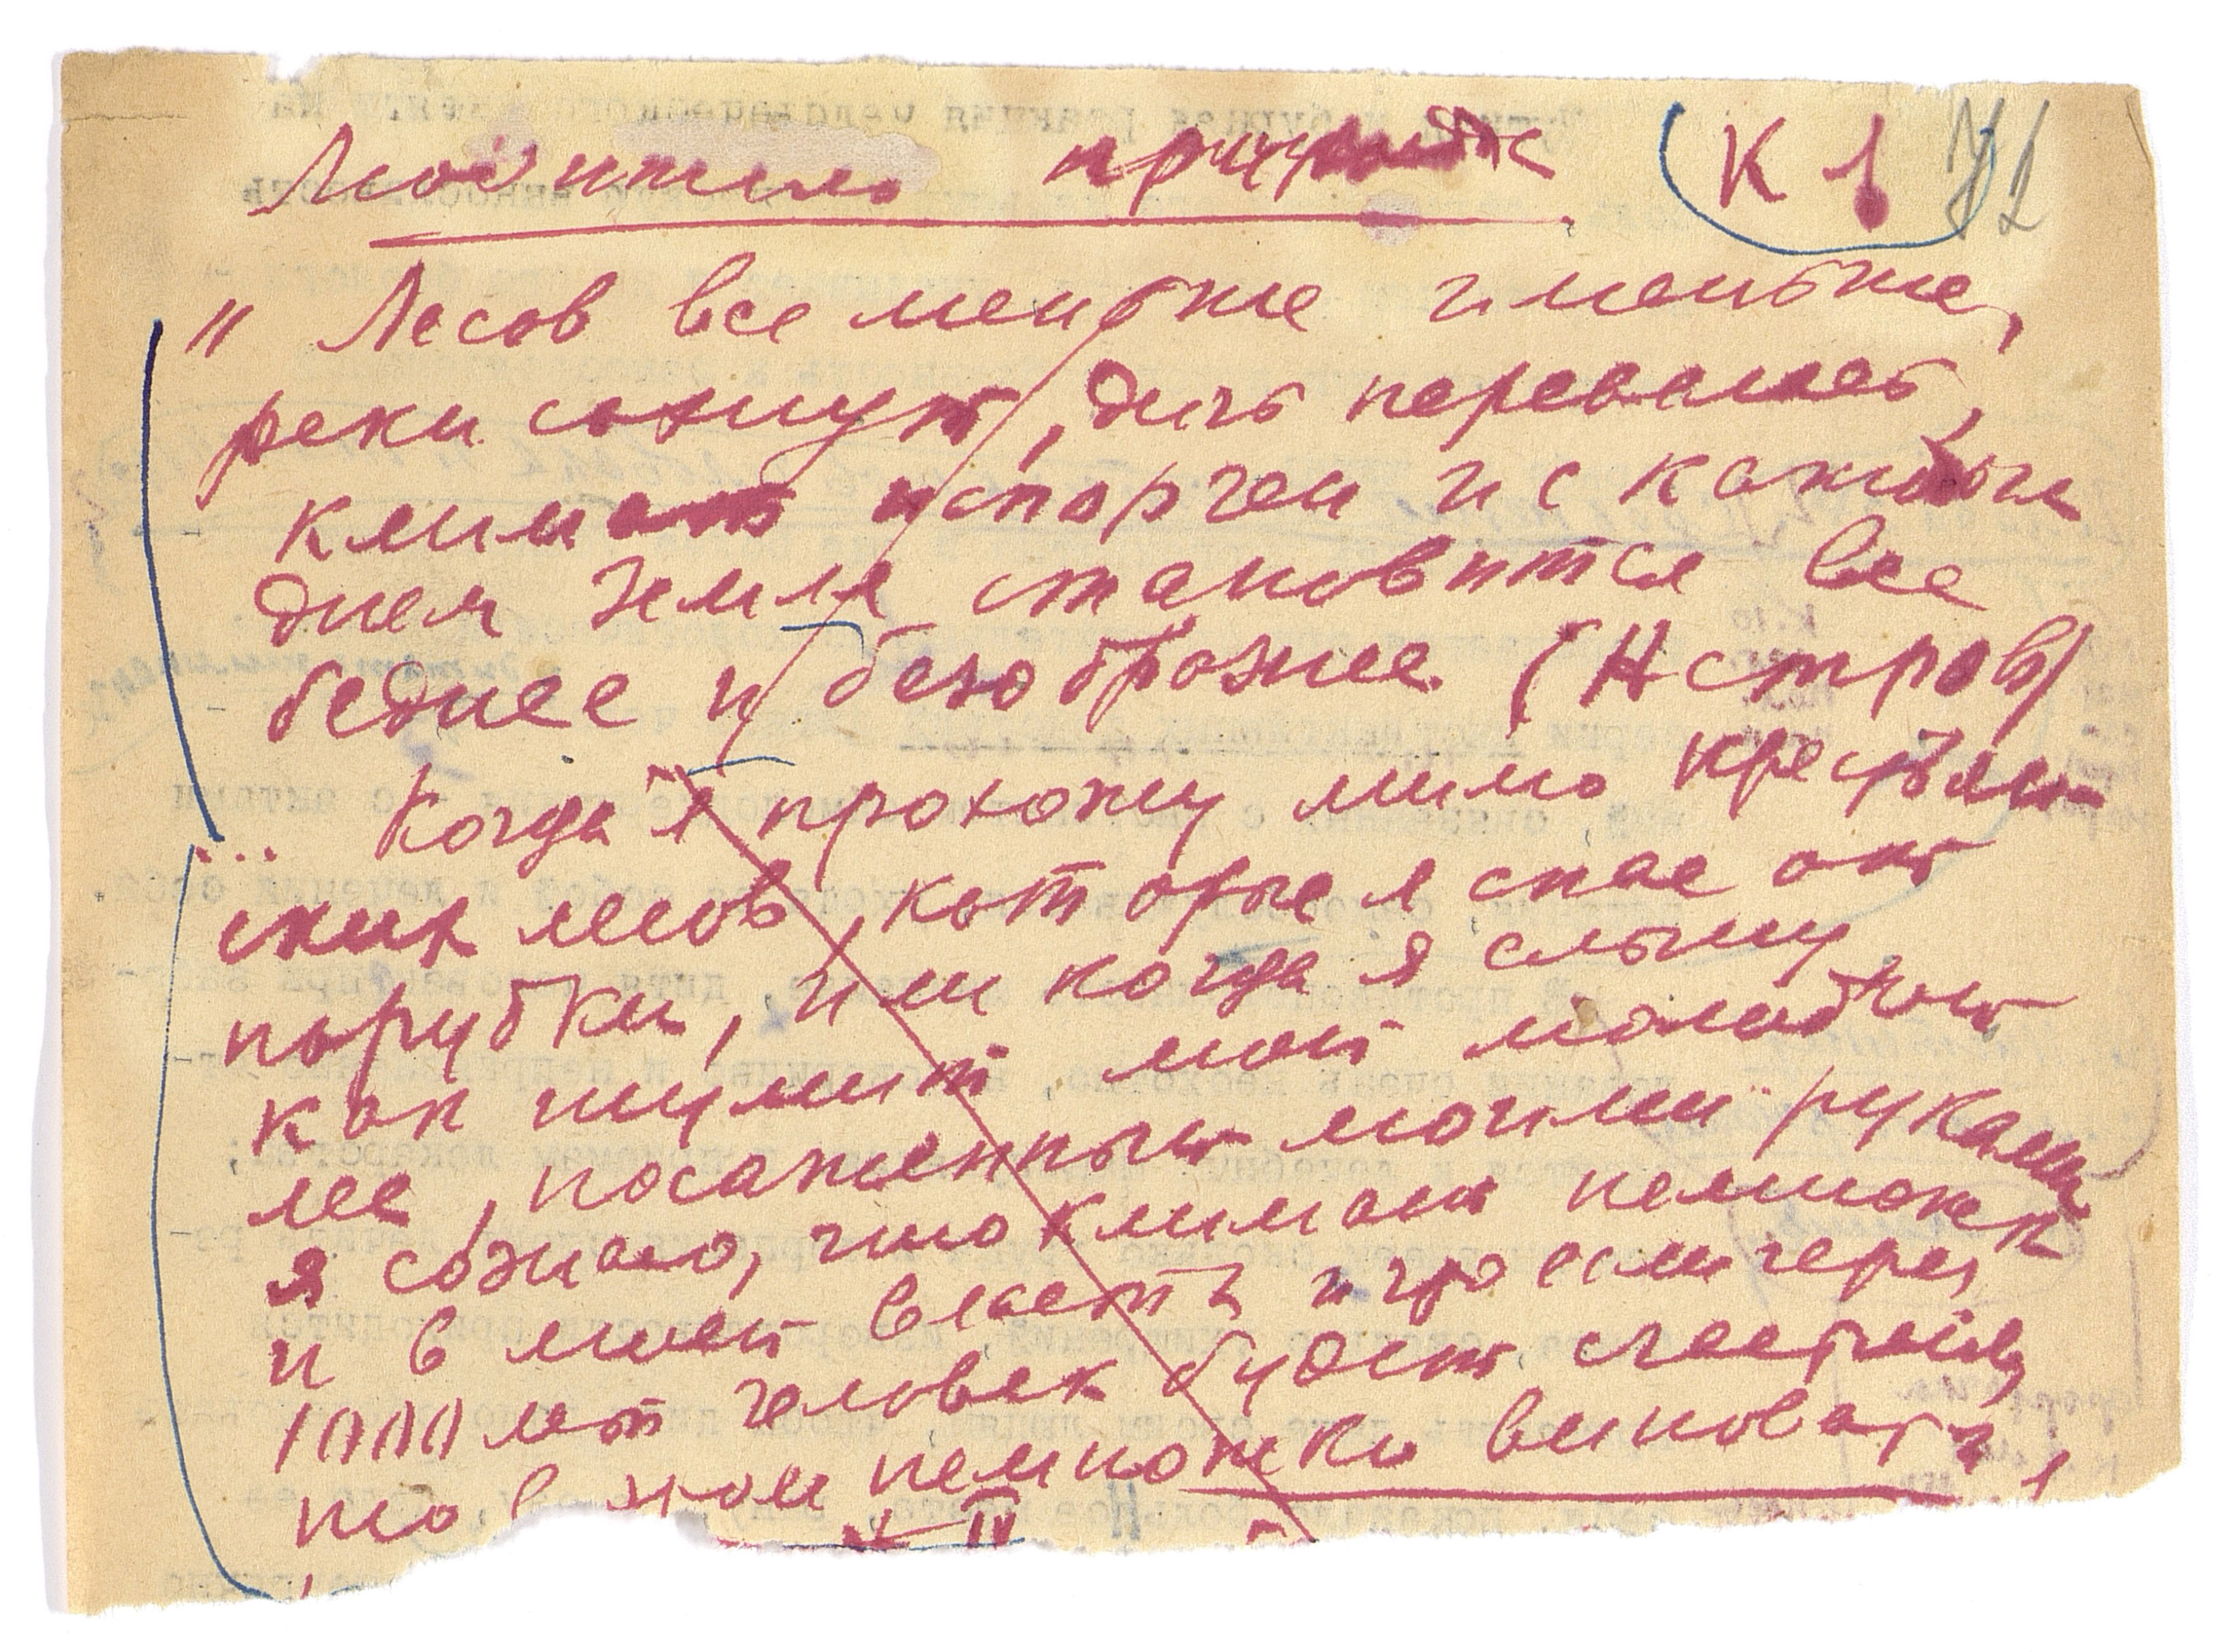 Любителю природы К 1 72
" Лесов все меньше и меньше,
реки сохнут, дичь перевелась,
климат испорчен и с каждым
днем земля становится все
беднее и безобразнее. (Астров)
... Когда я прохожу мимо крестьян-
ских лесов, которые я спас от
порубки, или когда я слышу
как шумит мой молодой
лес, посаженный моими руками
я сознаю, что климат немножко
и в моей власти и что если через
1000 лет человек будет счастлив,
то в этом немножко виноват и я
IV